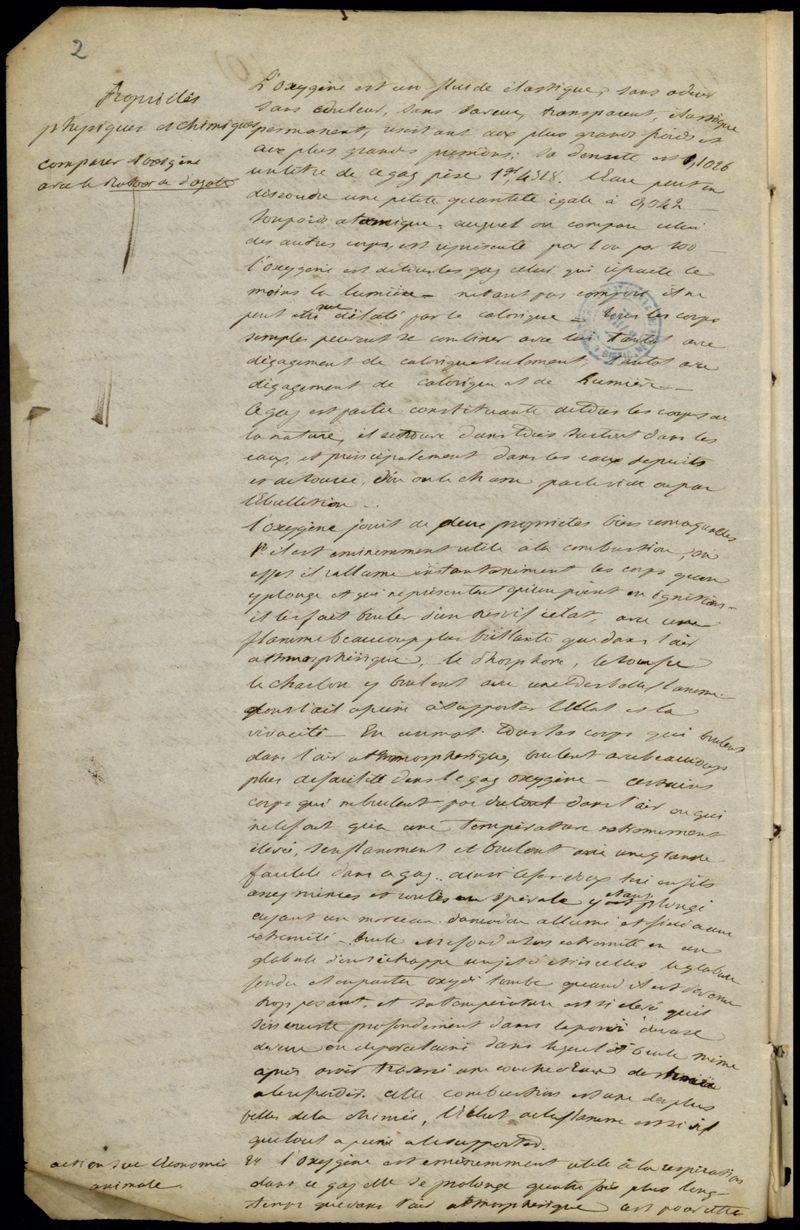 2
Propriétés
physiques et chimiques
comparer l'oxigène
avec le Protoxide d'azote
L'oxygène est un fluide élastique, sans odeur
sans couleur, sans saveur, transparent, élastique
permanent, résistant aux plus grands froids et
aux plus grandes pressions; sa densité est 1,1026
un litre de ce gaz pèse 1gr,4318. L'eau peut en
dissoudre une petite quantité égale à 0,042
son poids atomique, auquel on compare celui
des autres corps, est représenté par 1 ou par 100
l'oxygène est de tous les gaz celui qui réfracte le
moins la lumière — n'étant pas composé il ne
peut être dilaté par le calorique — tous les corps
simples peuvent se combiner avec lui tantot avec
dégagement de calorique seulement, tantot avec
dégagement de calorique et de lumière —
Ce gaz est partie constituante de tous les corps de
la nature, il se trouve dans tous surtout dans les
eaux, et principalement dans les eaux de puits
et de source, d'où on le chasse par le vide ou par
l'ébullition.
l'oxygène jouit de deux propriétés bien remarquables
1° il est éminemment utile à la combustion, en
effet il rallume instantanément les corps qu'on
y plonge et qui ne présentent qu'un point en ignition —
il les fait bruler d'un très vif éclat, avec une
flamme beaucoup plus brillante que dans l'air
athmosphérique, le phosphore, le soufre
le charbon y brulent avec une très belle flamme
dont l'œil a peine à supporter l'éclat et la
vivacité — En un mot tous les corps qui brulent
dans l'air athmosphérique, brulent avec beaucoup
plus de facilité dans le gaz oxygène — certains
corps qui ne brulent pas du tout dans l'air ou qui
ne le font qu'à une température extrêmement
élevée, s'enflamment et brulent avec une grande
facilité dans ce gaz.
assez minces et roulés en spirale y étant plongé
ayant un morceau d'amadou allumé et fixé à une
extrémité — brule et se fond à son extrémité en un
globule d'où s'échappe un jet d'étincelles, le globule
fondu et en partie oxydé tombe quand il est devenu
trop pesant, et sa température est si élevé qu'il
s'incruste profondément dans la paroi du vase
de verre ou de porcelaine dans lequel il brule même
après avoir traversé une couche d'eau
cette combustion est une des plus
belles de la chimie, l'éclat de la flamme est si vif
que l'œil a peine à le supporter.
action sur l'économie
animale
2° l'Oxygène est éminemment utile à la respiration
dans ce gaz elle se prolonge quatre fois plus long-
temps que dans l'air athmosphérique